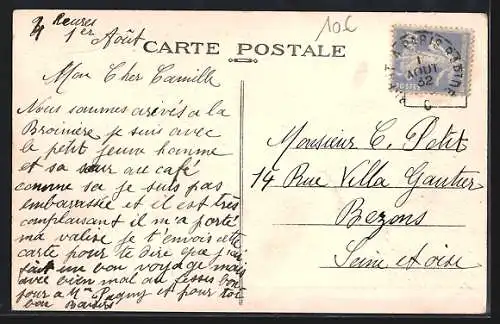 4 heures
1er Août
10c
CARTE POSTALE
PARIS
1
AOUT
32
Mon Cher Camille
Nous sommes arivés a la
Broinière je suis avec
le petit jeune homme
et sa sœur au café
comme sa je suis pas
embarassée et il est très
complaisant il m'a porté
ma valise je t'envois cette
carte pour te dire que j'ai
fait une bon voyage mais
avec bien mal au fesses bon
pour a Mme Pagny et pour toi
bon Baisers
Monsieur C. Petit
14 Rue Villa Gautier
Bezons
Seine et oise